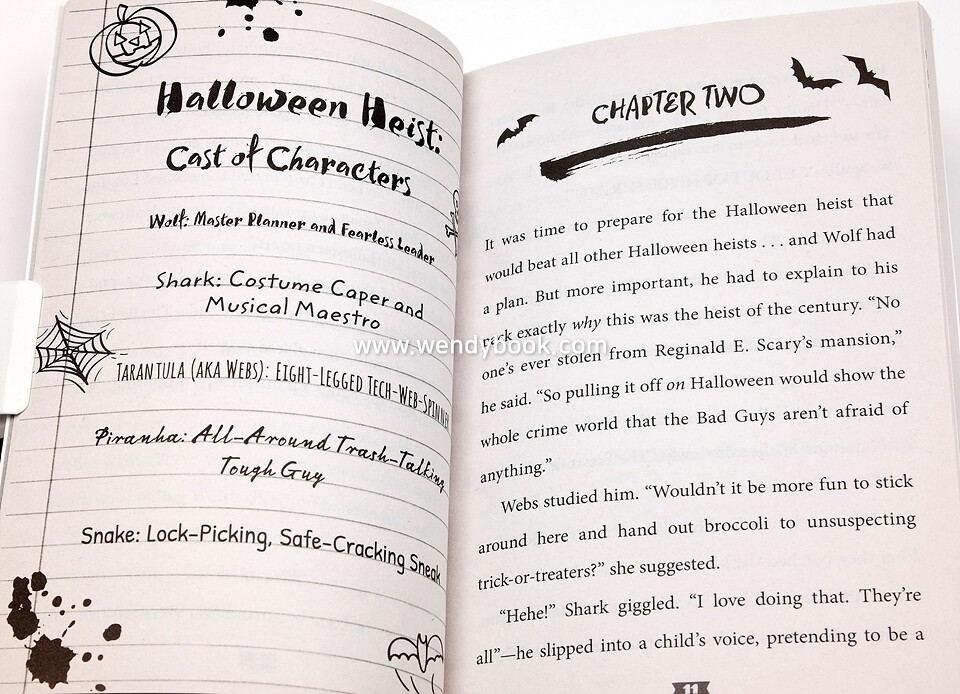 Halloween Heist:
Cast of Characters
Wolf: Master Planner and Fearless Leader
Shark: Costume Caper and
Musical Maestro
TARANTULA (AKA WEBS): EIGHT-LEGGED TECH-WEB-SPINNER
Piranha: All-Around Trash-Talking
Tough Guy
Snake: Lock-Picking, Safe-Cracking Sneak
CHAPTER TWO
It was time to prepare for the Halloween heist that
would beat all other Halloween heists . . . and Wolf had
a plan. But more important, he had to explain to his
pack exactly why this was the heist of the century. “No
one’s ever stolen from Reginald E. Scary’s mansion,”
he said. “So pulling it off on Halloween would show the
whole crime world that the Bad Guys aren’t afraid of
anything.”
Webs studied him. “Wouldn’t it be more fun to stick
around here and hand out broccoli to unsuspecting
trick-or-treaters?” she suggested.
“Hehe!” Shark giggled. “I love doing that. They’re
all”—he slipped into a child’s voice, pretending to be a
11
www.wendybook.com